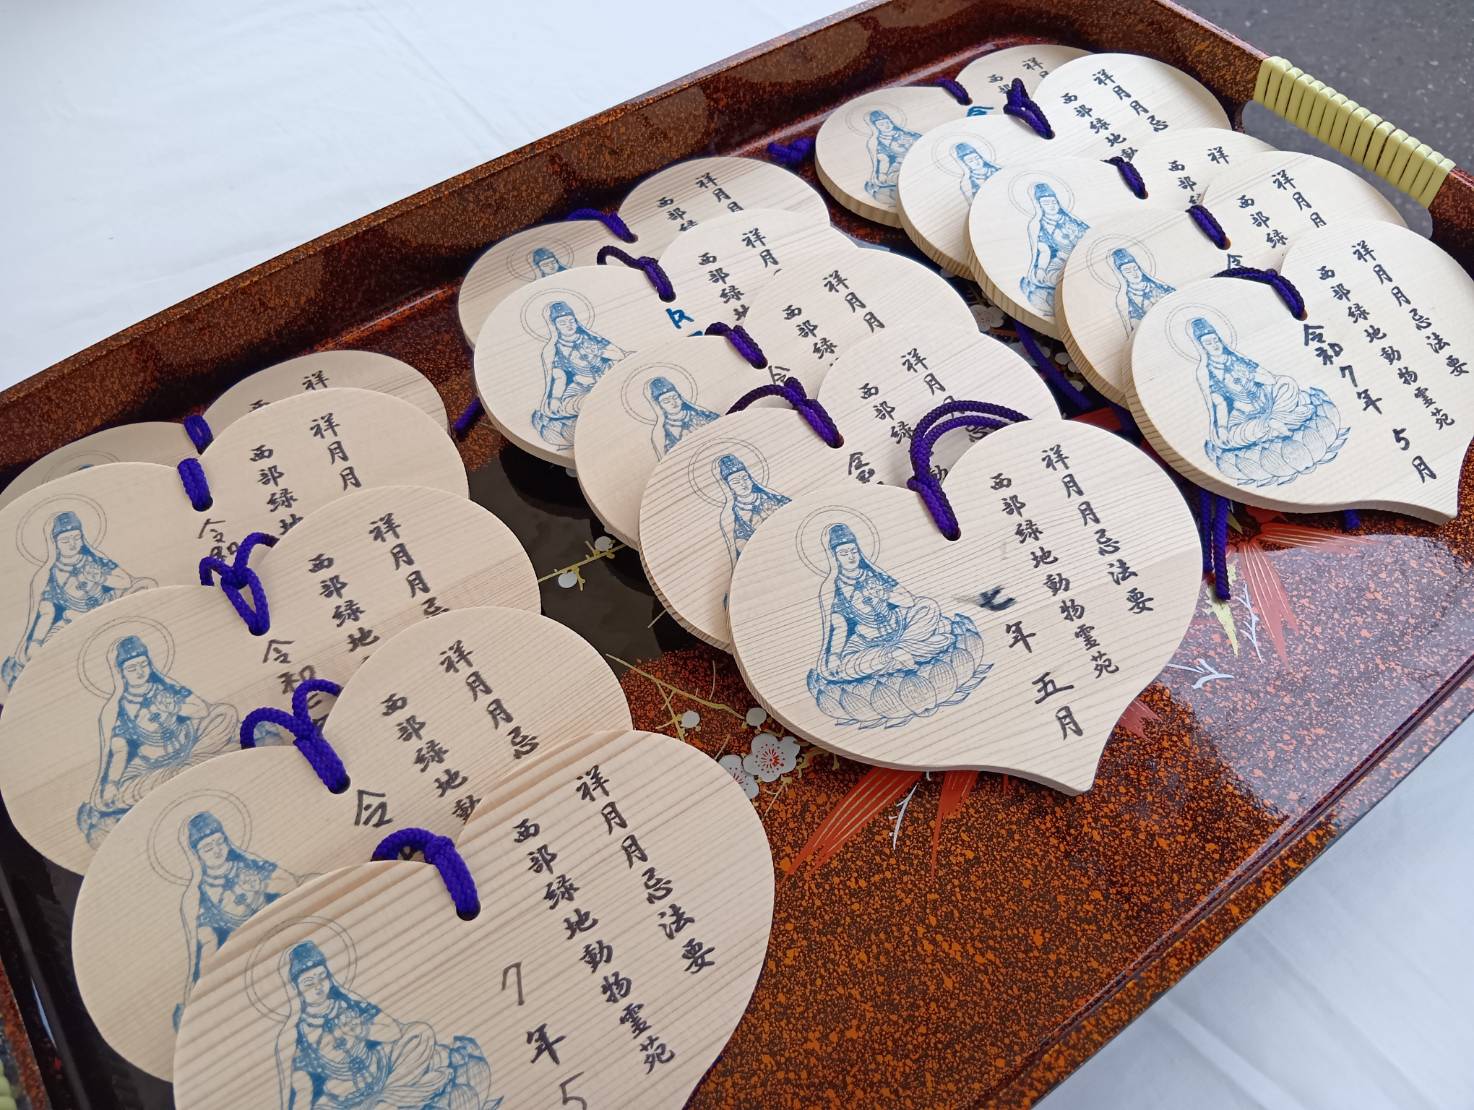 祥月
西部
祥月月忌
西部緑地動
祥
西部
祥月月
西部緑
祥月月忌法要
西部緑地動物霊苑
令和7年5月
祥月月
西部緑
祥月月
西部緑地
祥月月
西部緑
令
祥月月
西部緑
令和
祥月月忌法要
西部緑地動物霊苑
七年五月
祥
西
祥月月
西部緑地
令和
祥月月忌
西部緑地
令和
祥月月忌
西部緑地動
令
祥月月忌法要
西部緑地動物霊苑
7年5